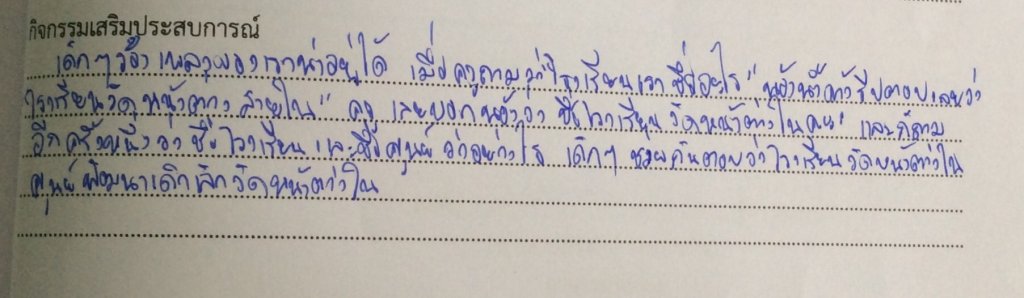 กิจกรรมเสริมประสบการณ์
เด็กๆร้องเพลงของเราน่าอยู่ได้ เมื่อครูถามว่า"โรงเรียนเราชื่ออะไร" น้องน้ำค้างรีบตอบเลยว่า
"โรงเรียนวัดหน้าต่างสายใน" ครูเลยบอกหนูว่า ชื่อโรงเรียนวัดหน้าต่างใน และก็ถาม
อีกครั้งหนึ่งว่า ชื่อโรงเรียน และชื่อศูนย์ว่าอย่างไร เด็กๆ ช่วยกันตอบว่า โรงเรียนวัดหน้าต่างใน
ศูนย์พัฒนาเด็กเล็กวัดหน้าต่างใน